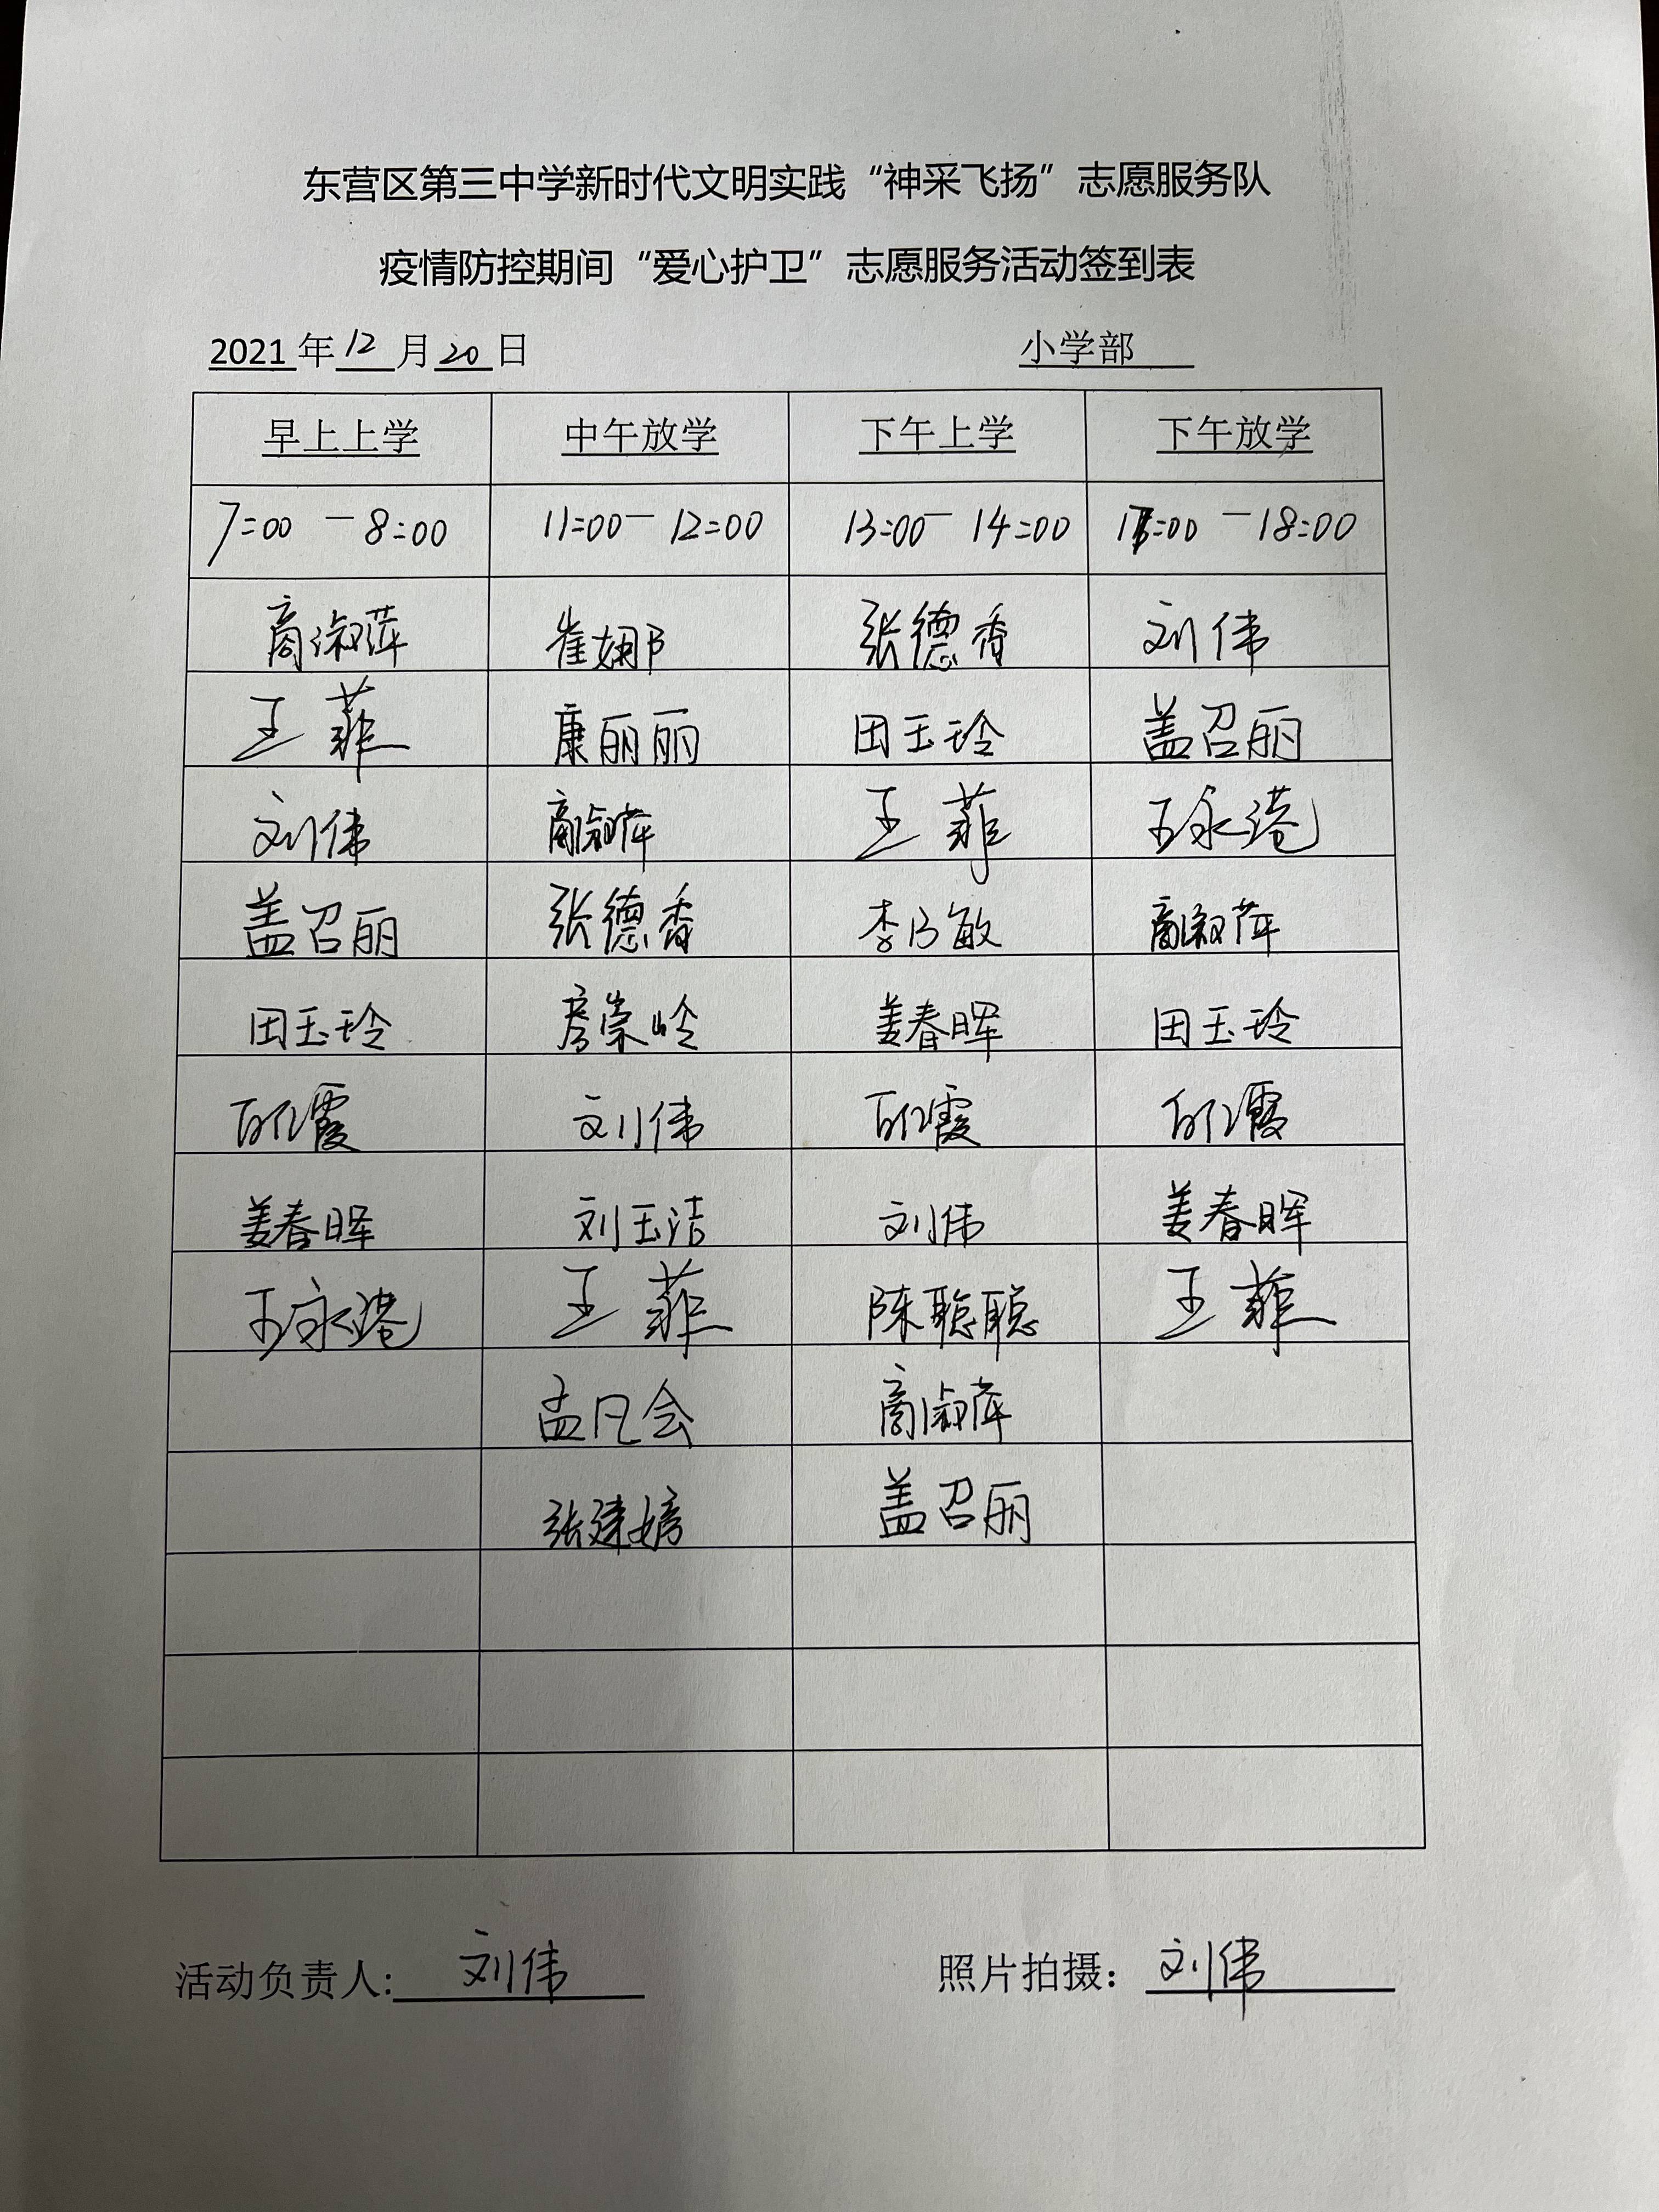 东营区第三中学新时代文明实践“神采飞扬”志愿服务队
疫情防控期间“爱心护卫”志愿服务活动签到表
2021年12月20日 小学部
早上上学 中午放学 下午上学 下午放学
7:00 - 8:00 11:00 - 12:00 13:00 - 14:00 17:00 - 18:00
商淑萍 崔娜 张德香 刘伟
王菲 康丽丽 田玉玲 盖召丽
刘伟 商淑萍 王菲 王永港
盖召丽 张德香 李乃敏 商淑萍
田玉玲 姜春晖 田玉玲
霞 刘伟 霞 霞
姜春晖 刘玉洁 刘伟 姜春晖
王永港 王菲 陈聪聪 王菲
孟凡会 商淑萍
张建婷 盖召丽
活动负责人:刘伟 照片拍摄：刘伟